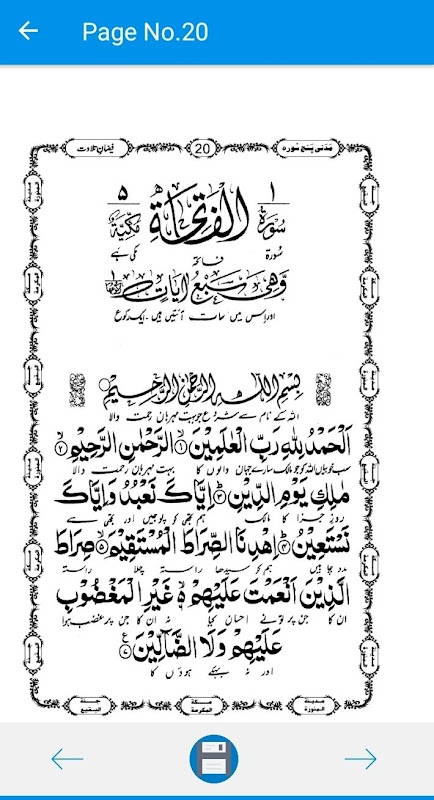 Page No.20
مَدَنی پنج سُورہ
20
فیضانِ تلاوت
۱ سُوْرَةُ الْفَاتِحَةِ مَكِّيَّةٌ ۵
سُورۃ فاتحہ مکی ہے
وَّهِىَ سَبْعُ اٰيَاتٍ
اور اس میں سات آیتیں ہیں ۔ ایک رکوع
بِسْمِ اللهِ الرَّحْمٰنِ الرَّحِيْمِ
اللہ کے نام سے شروع جو بہت مہربان رحمت والا
اَلْحَمْدُ لِلّٰهِ رَبِّ الْعٰلَمِيْنَ ۱ الرَّحْمٰنِ الرَّحِيْمِ ۲
سب خوبیاں اللہ کو جو مالک سارے جہان والوں کا بہت مہربان رحمت والا
مٰلِكِ يَوْمِ الدِّيْنِ ۳ اِيَّاكَ نَعْبُدُ وَاِيَّاكَ
روزِ جزا کا مالک ہم تجھی کو پوجیں اور تجھی سے
نَسْتَعِيْنُ ۴ اِهْدِنَا الصِّرَاطَ الْمُسْتَقِيْمَ ۵ صِرَاطَ
مدد چاہیں ہم کو سیدھا راستہ چلا راستہ
الَّذِيْنَ اَنْعَمْتَ عَلَيْهِمْ ۶ غَيْرِ الْمَغْضُوْبِ
ان کا جن پر تو نے احسان کیا نہ ان کا جن پر غضب ہوا
عَلَيْهِمْ وَلَا الضَّآلِّيْنَ ۷
اور نہ بہکے ہوؤں کا
مدينة المنورة
مكة المكرمة
جنة البقيع